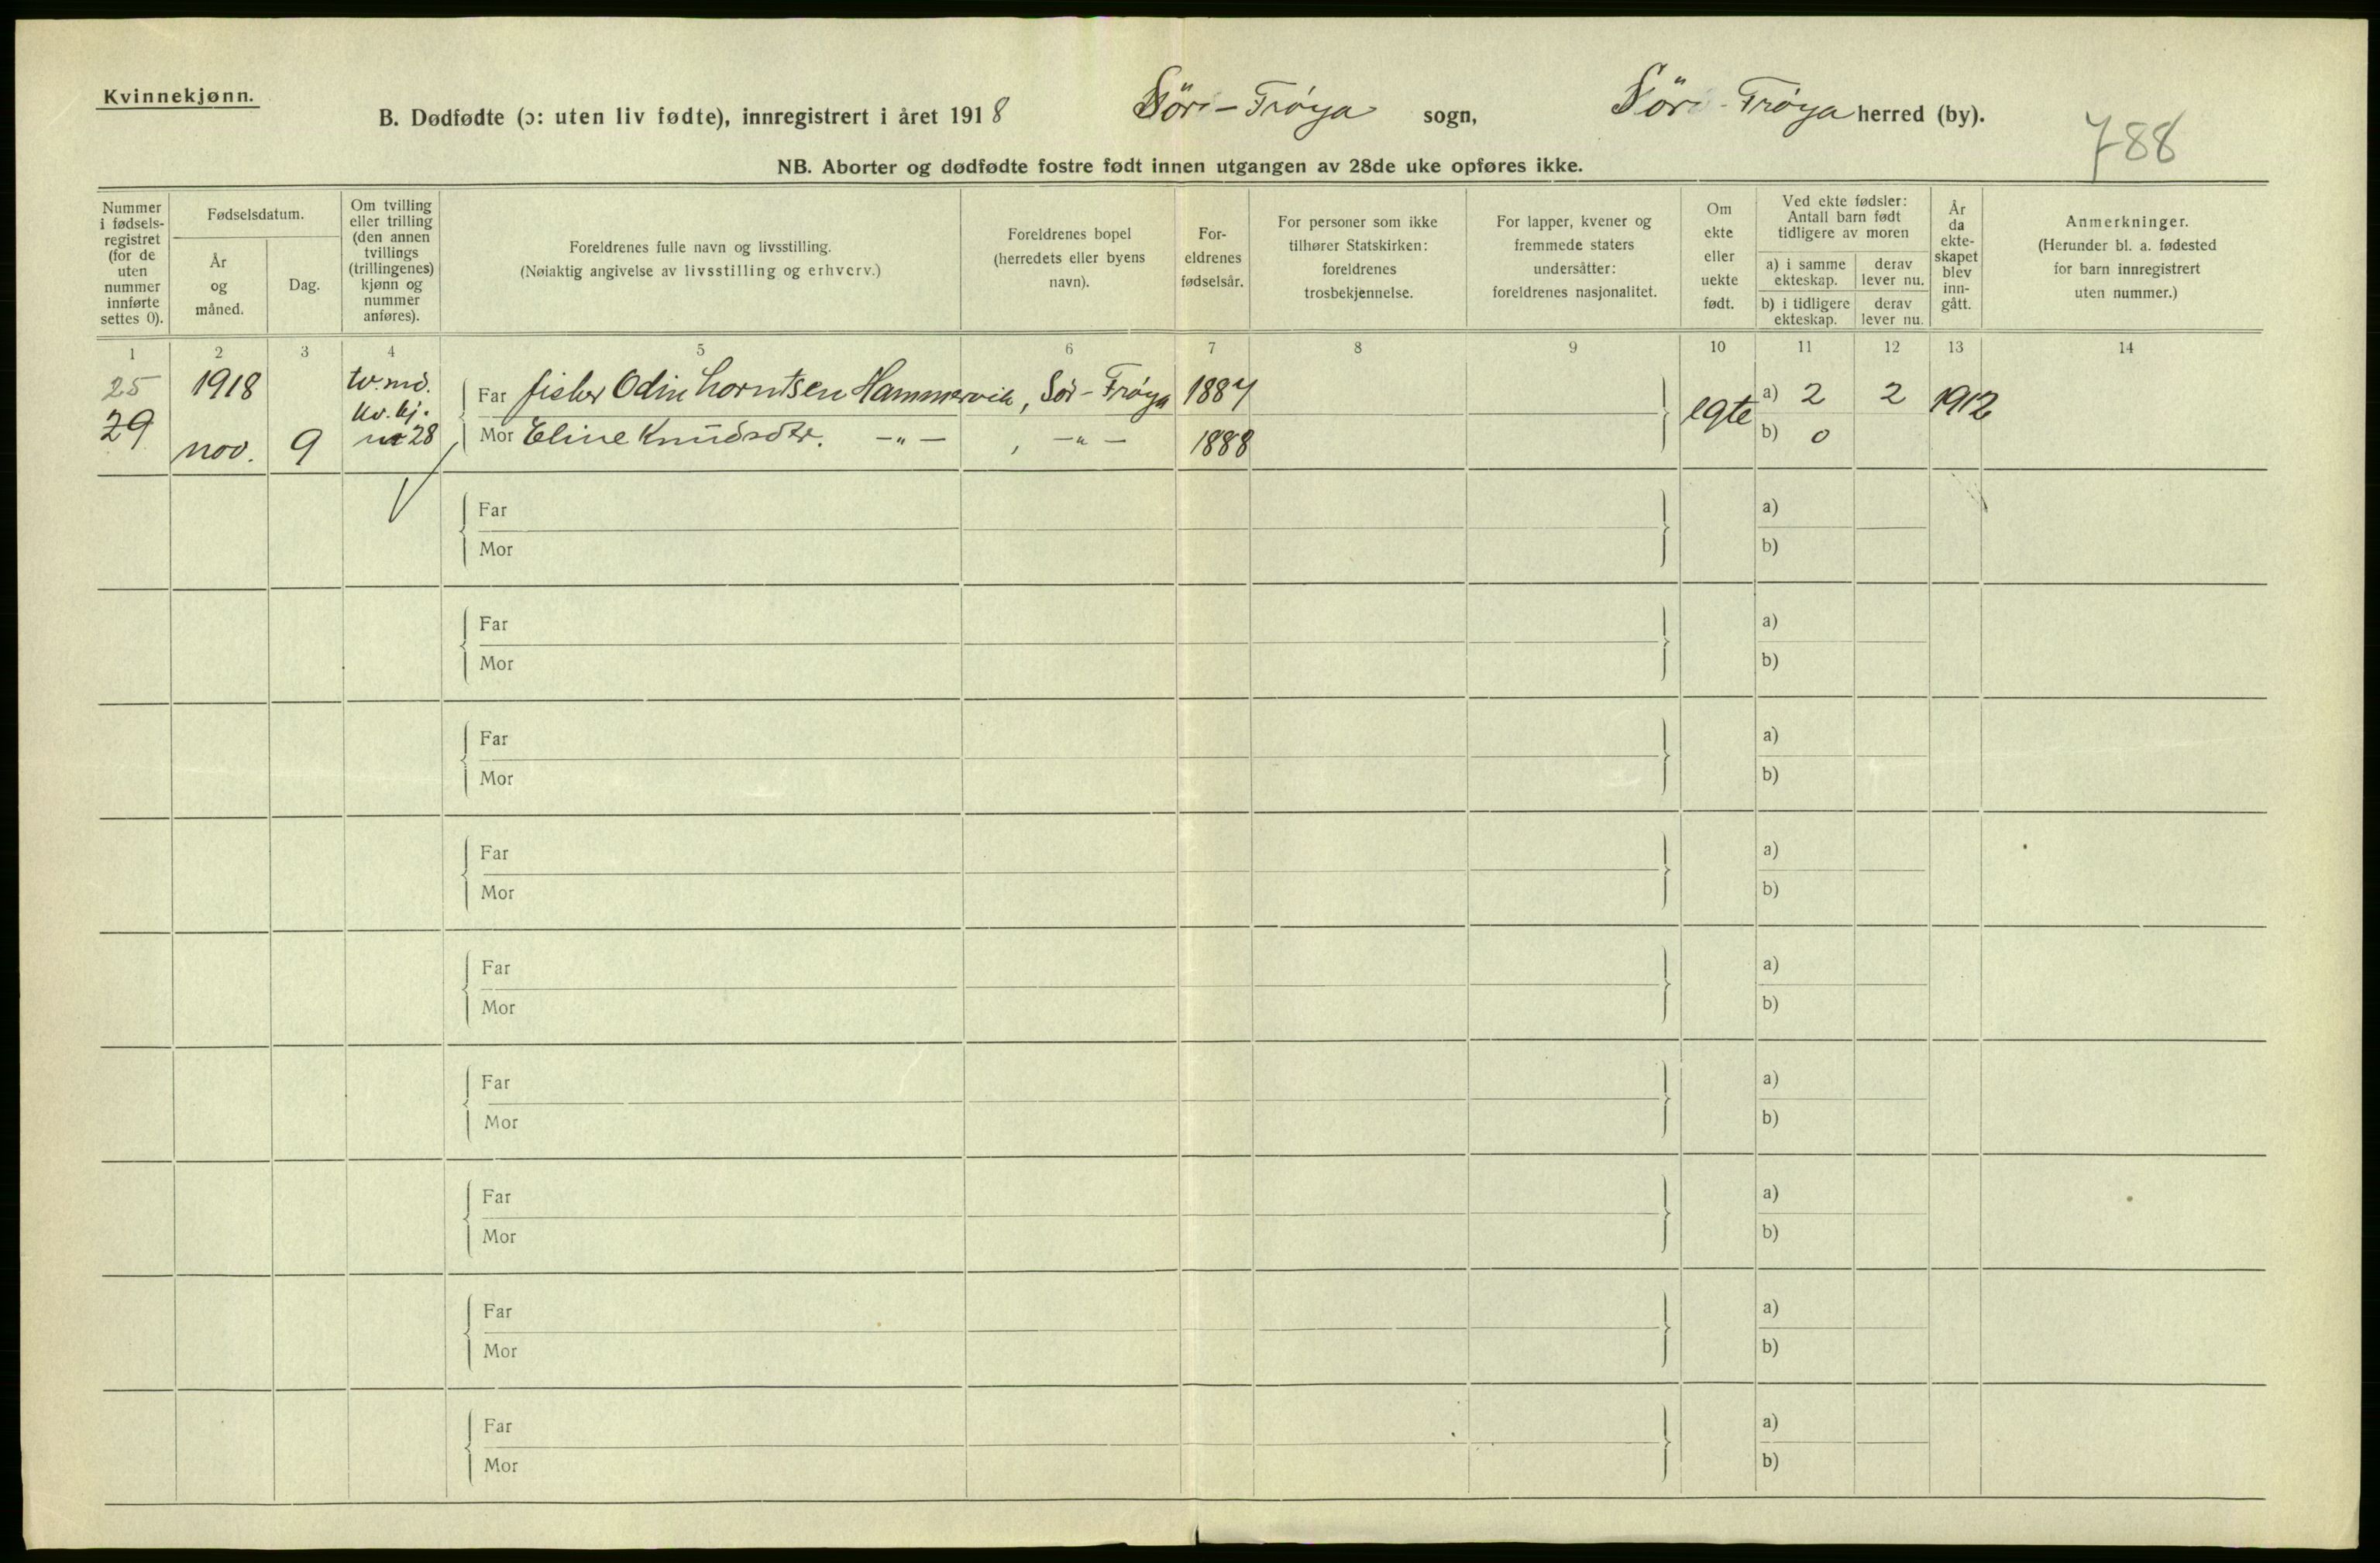 Kvinnekjønn.
B. Dødfødte (ɔ: uten liv fødte), innregistrert i året 1918 Sör-Frøya sogn, Sör-Frøya herred (by).
788
NB. Aborter og dødfødte fostre født innen utgangen av 28de uke opføres ikke.
Nummer i fødsels-registret (for de uten nummer innførte settes 0).
Fødselsdatum.
År og måned.
Dag.
Om tvilling eller trilling (den annen tvillings (trillingenes) kjønn og nummer anføres).
Foreldrenes fulle navn og livsstilling.
(Nøiaktig angivelse av livsstilling og erhverv.)
Foreldrenes bopel (herredets eller byens navn).
For-eldrenes fødselsår.
For personer som ikke tilhører Statskirken: foreldrenes trosbekjennelse.
For lapper, kvener og fremmede staters undersåtter: foreldrenes nasjonalitet.
Om ekte eller uekte født.
Ved ekte fødsler: Antall barn født tidligere av moren
a) i samme ekteskap.
derav lever nu.
b) i tidligere ekteskap.
derav lever nu.
År da ekte-skapet blev inn-gått.
Anmerkninger.
(Herunder bl. a. fødested for barn innregistrert uten nummer.)
1 2 3 4 5 6 7 8 9 10 11 12 13 14
25 1918 tv. md. Far fisker Odin Lorntsen Hammervik, Sör-Frøya 1884 egte a) 2 2 1912
29 nov. 9 kv. kj. nr 28 Mor Eline Knudsdtr. -"- , -"- 1888 b) 0
Far a)
Mor b)
Far a)
Mor b)
Far a)
Mor b)
Far a)
Mor b)
Far a)
Mor b)
Far a)
Mor b)
Far a)
Mor b)
Far a)
Mor b)
Far a)
Mor b)